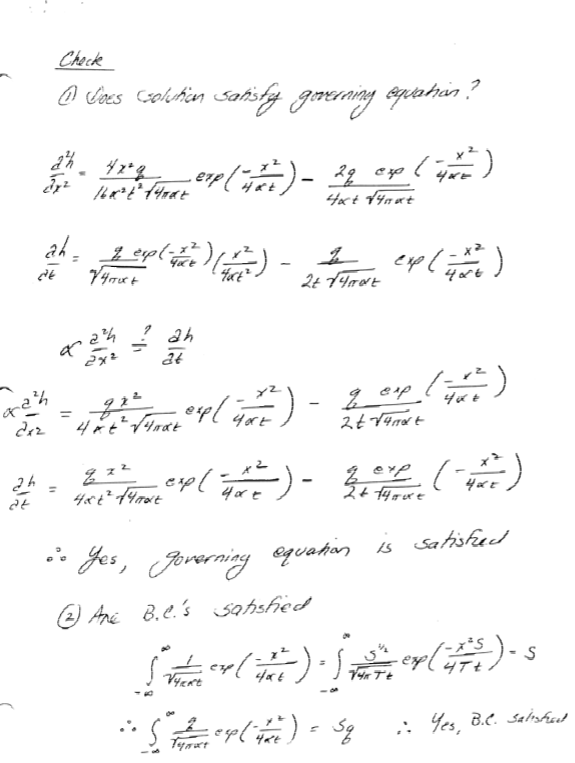 Check
① Does solution satisfy governing equation?
∂²h/∂x² = 4x²q/(16α²t²√(4παt)) exp(-x²/(4αt)) - 2q exp/(4αt √(4παt)) (-x²/(4αt))
∂h/∂t = q exp(-x²/(4αt))/√(4παt) (x²/(4αt²)) - q/(2t √(4παt)) exp(-x²/(4αt))
α ∂²h/∂x² ≟ ∂h/∂t
α ∂²h/∂x² = qx²/(4αt²√(4παt)) exp(-x²/(4αt)) - q exp/(2t √(4παt)) (-x²/(4αt))
∂h/∂t = qx²/(4αt²√(4παt)) exp(-x²/(4αt)) - q exp/(2t √(4παt)) (-x²/(4αt))
∴ Yes, governing equation is satisfied
② Are B.C.'s satisfied
∫_{-∞}^{∞} 1/√(4παt) exp(-x²/(4αt)) = ∫_{-∞}^{∞} S^{1/2}/√(4πTt) exp(-x²S/(4Tt)) = S
∴ ∫_{-∞}^{∞} q/√(4παt) exp(-x²/(4αt)) = Sq ∴ Yes, B.C. satisfied